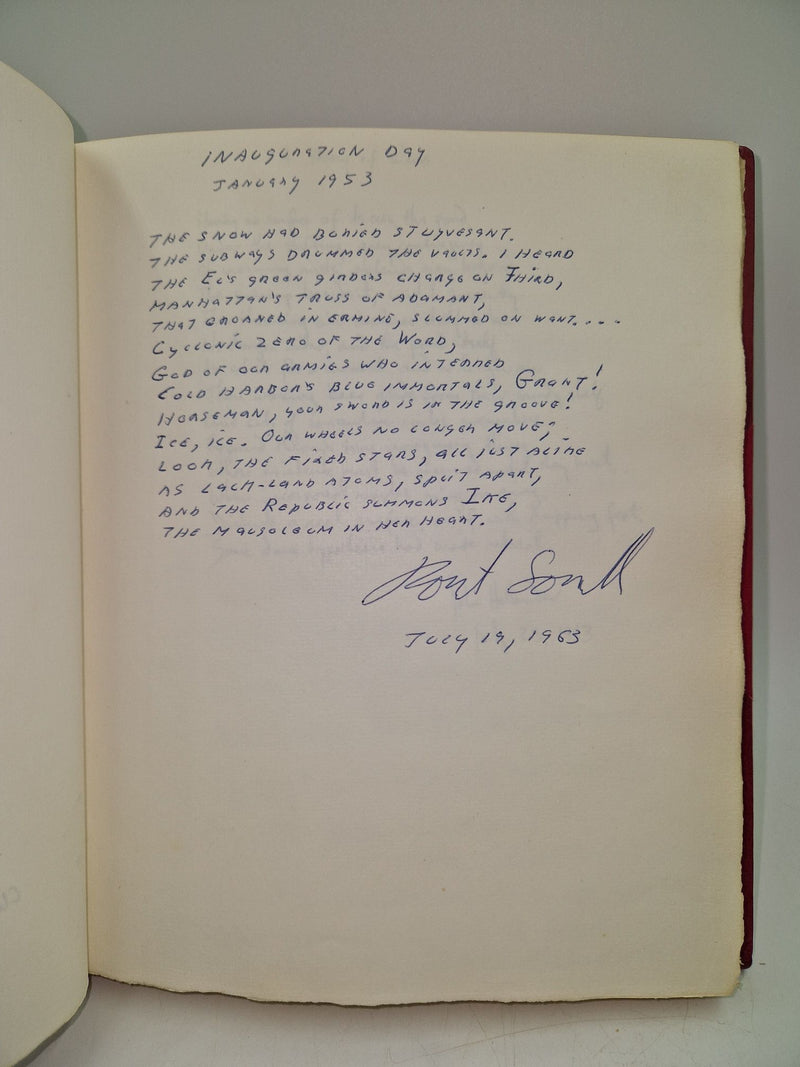 INAUGURATION DAY
JANUARY 1953
THE SNOW HAD BURIED STUYVESANT.
THE SUBWAYS DRUMMED THE VAULTS. I HEARD
THE EL'S GREEN GIRDERS CHARGE ON THIRD,
MANHATTAN'S TRUSS OF ADAMANT,
THAT GROANED IN ERMINE, SLUMMED ON WANT....
CYCLONIC ZERO OF THE WORD,
GOD OF OUR ARMIES WHO INTERRED
COLD HARBOR'S BLUE IMMORTALS, GRANT!
HORSEMAN, YOUR SWORD IS IN THE GROOVE!
ICE, ICE. OUR WHEELS NO LONGER MOVE;
LOOK, THE FIXED STARS, ALL JUST ALIKE
AS LACK-LAND ATOMS, SPLIT APART,
AND THE REPUBLIC SUMMONS IKE,
THE MAUSOLEUM IN HER HEART.
Robert Lowell
JULY 19, 1963